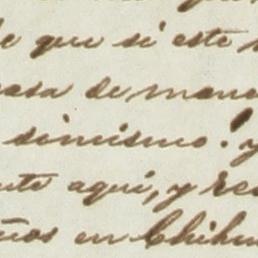 e que si este
asa de mane
simismo! y
nte aquí, y re
ños en Chihu